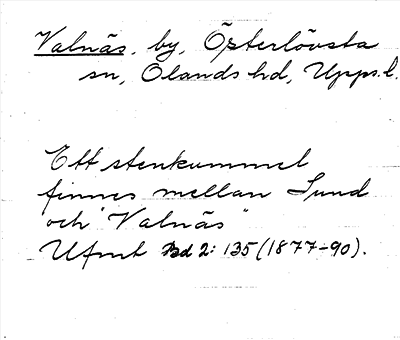 Valnäs, by, Österlövsta
sn, Olands hd, Upps.l.
Ett stenkummel
finnes mellan Sund
och "Valnäs"
Ufmt Bd 2: 135 (1877-90).